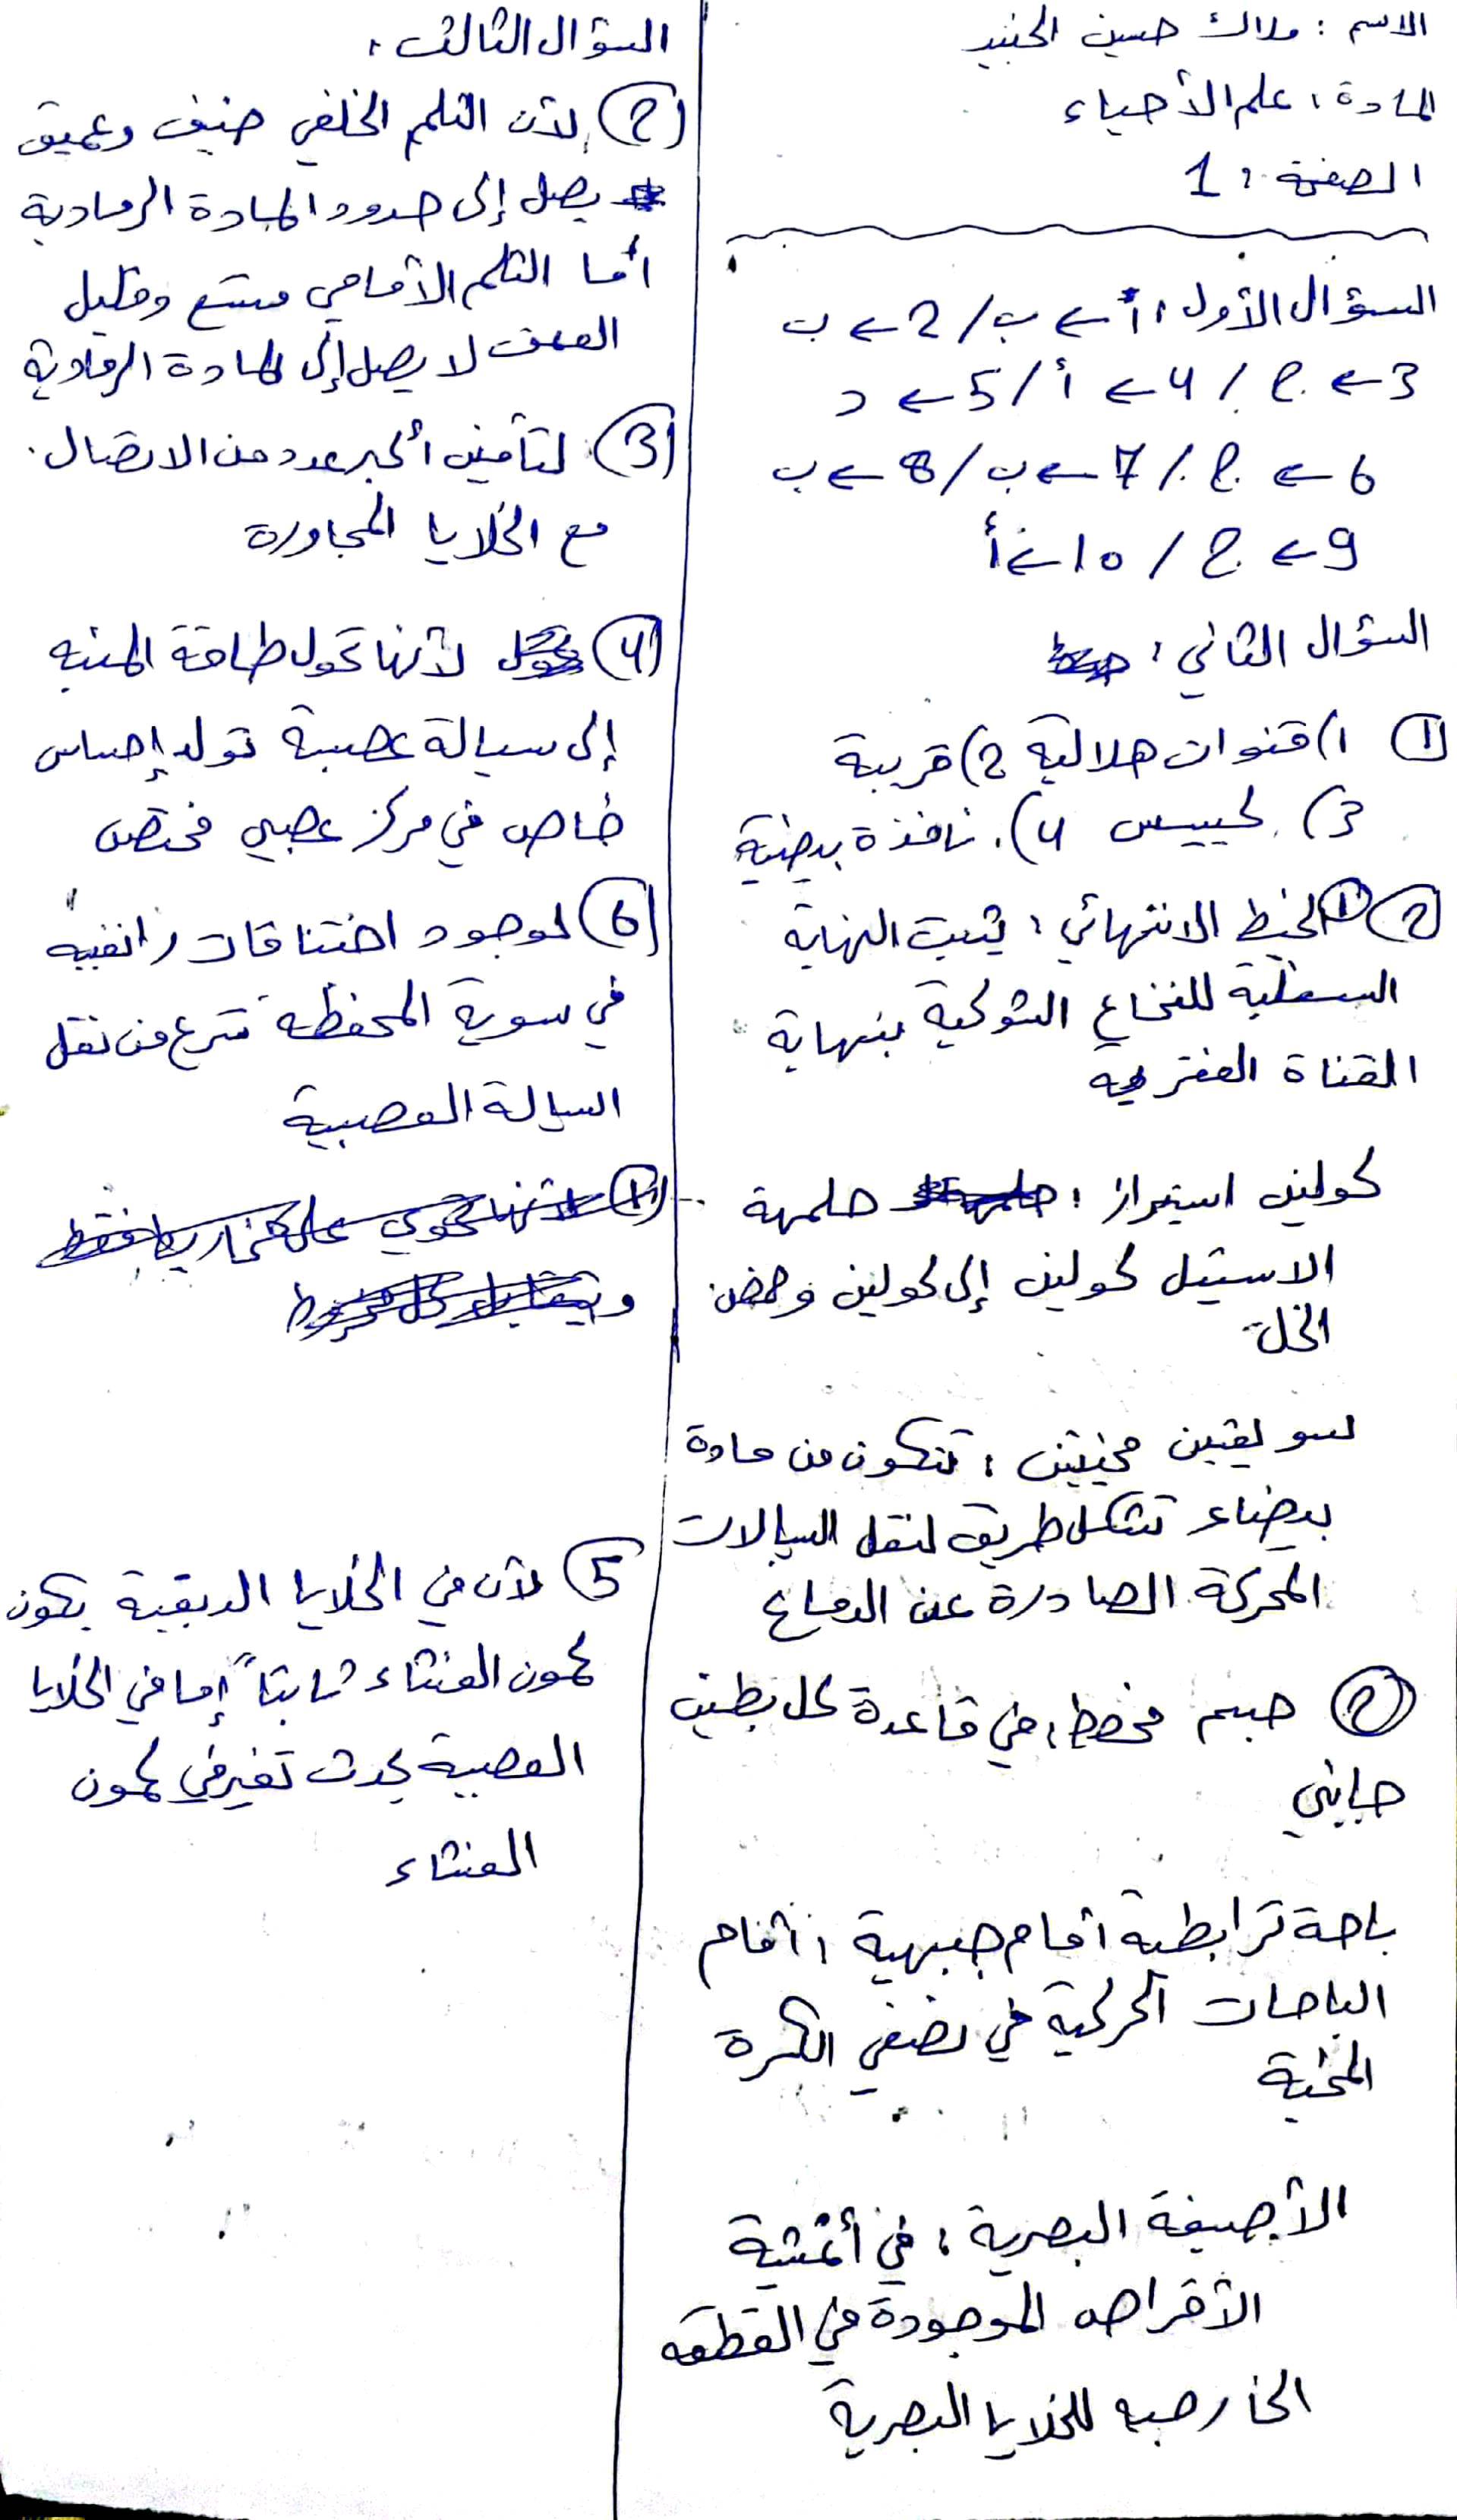 الاسم : ملاك حسين الجنيد
المادة : علم الأحياء
الصفحة : 1
السؤال الأول : 1 ← ب / 2 ← ب
3 ← ج / 4 ← أ / 5 ← د
6 ← ج / 7 ← ب / 8 ← ب
9 ← ج / 10 ← أ
السؤال الثاني :
① 1) قنوات هلالية 2) قريبة
3) كييس 4) نافذة بيضية
② ① الخيط الانتهائي : يثبت النهاية
السفلية للنخاع الشوكية بنهاية
القناة الفقرية
كولين استيراز : حلمهة
الاستيل كولين إلى كولين وحمض
الخل
لسويقتين مخيتين : تتكون من مادة
بيضاء تشكل طريق لنقل السيالات
المحركة الصادرة عن الدماغ
② جسم مخطط : في قاعدة كل بطين
جانبي
باحة ترابطية أمام جبهية : أمام
الباحات الحركية في نصفي الكرة
المخية
الأصبغة البصرية : في أغشية
الأقراص الموجودة في القطعة
الخارجية للخلايا البصرية
السؤال الثالث :
② لأن الثلم الخلفي ضيف وعميق
يصل إلى حدود المادة الرمادية
أما الثلم الأمامي متسع وقليل
العمق لا يصل إلى المادة الرمادية
③ لتأمين أكبر عدد من الاتصال .
مع الخلايا المجاورة
④ لأنها تحول طاقة المنبه
إلى سيالة عصبية تولد إحساس
خاص في مركز عصبي مختص
⑥ لوجود اختناقات رانفييه
في سوية المحفظة تسرع من نقل
السيالة العصبية
⑤ لأن في الخلايا الدبقية يكون
كمون الغشاء ثابتاً إما في الخلايا
العصبية يحدث تغير في كمون
الغشاء